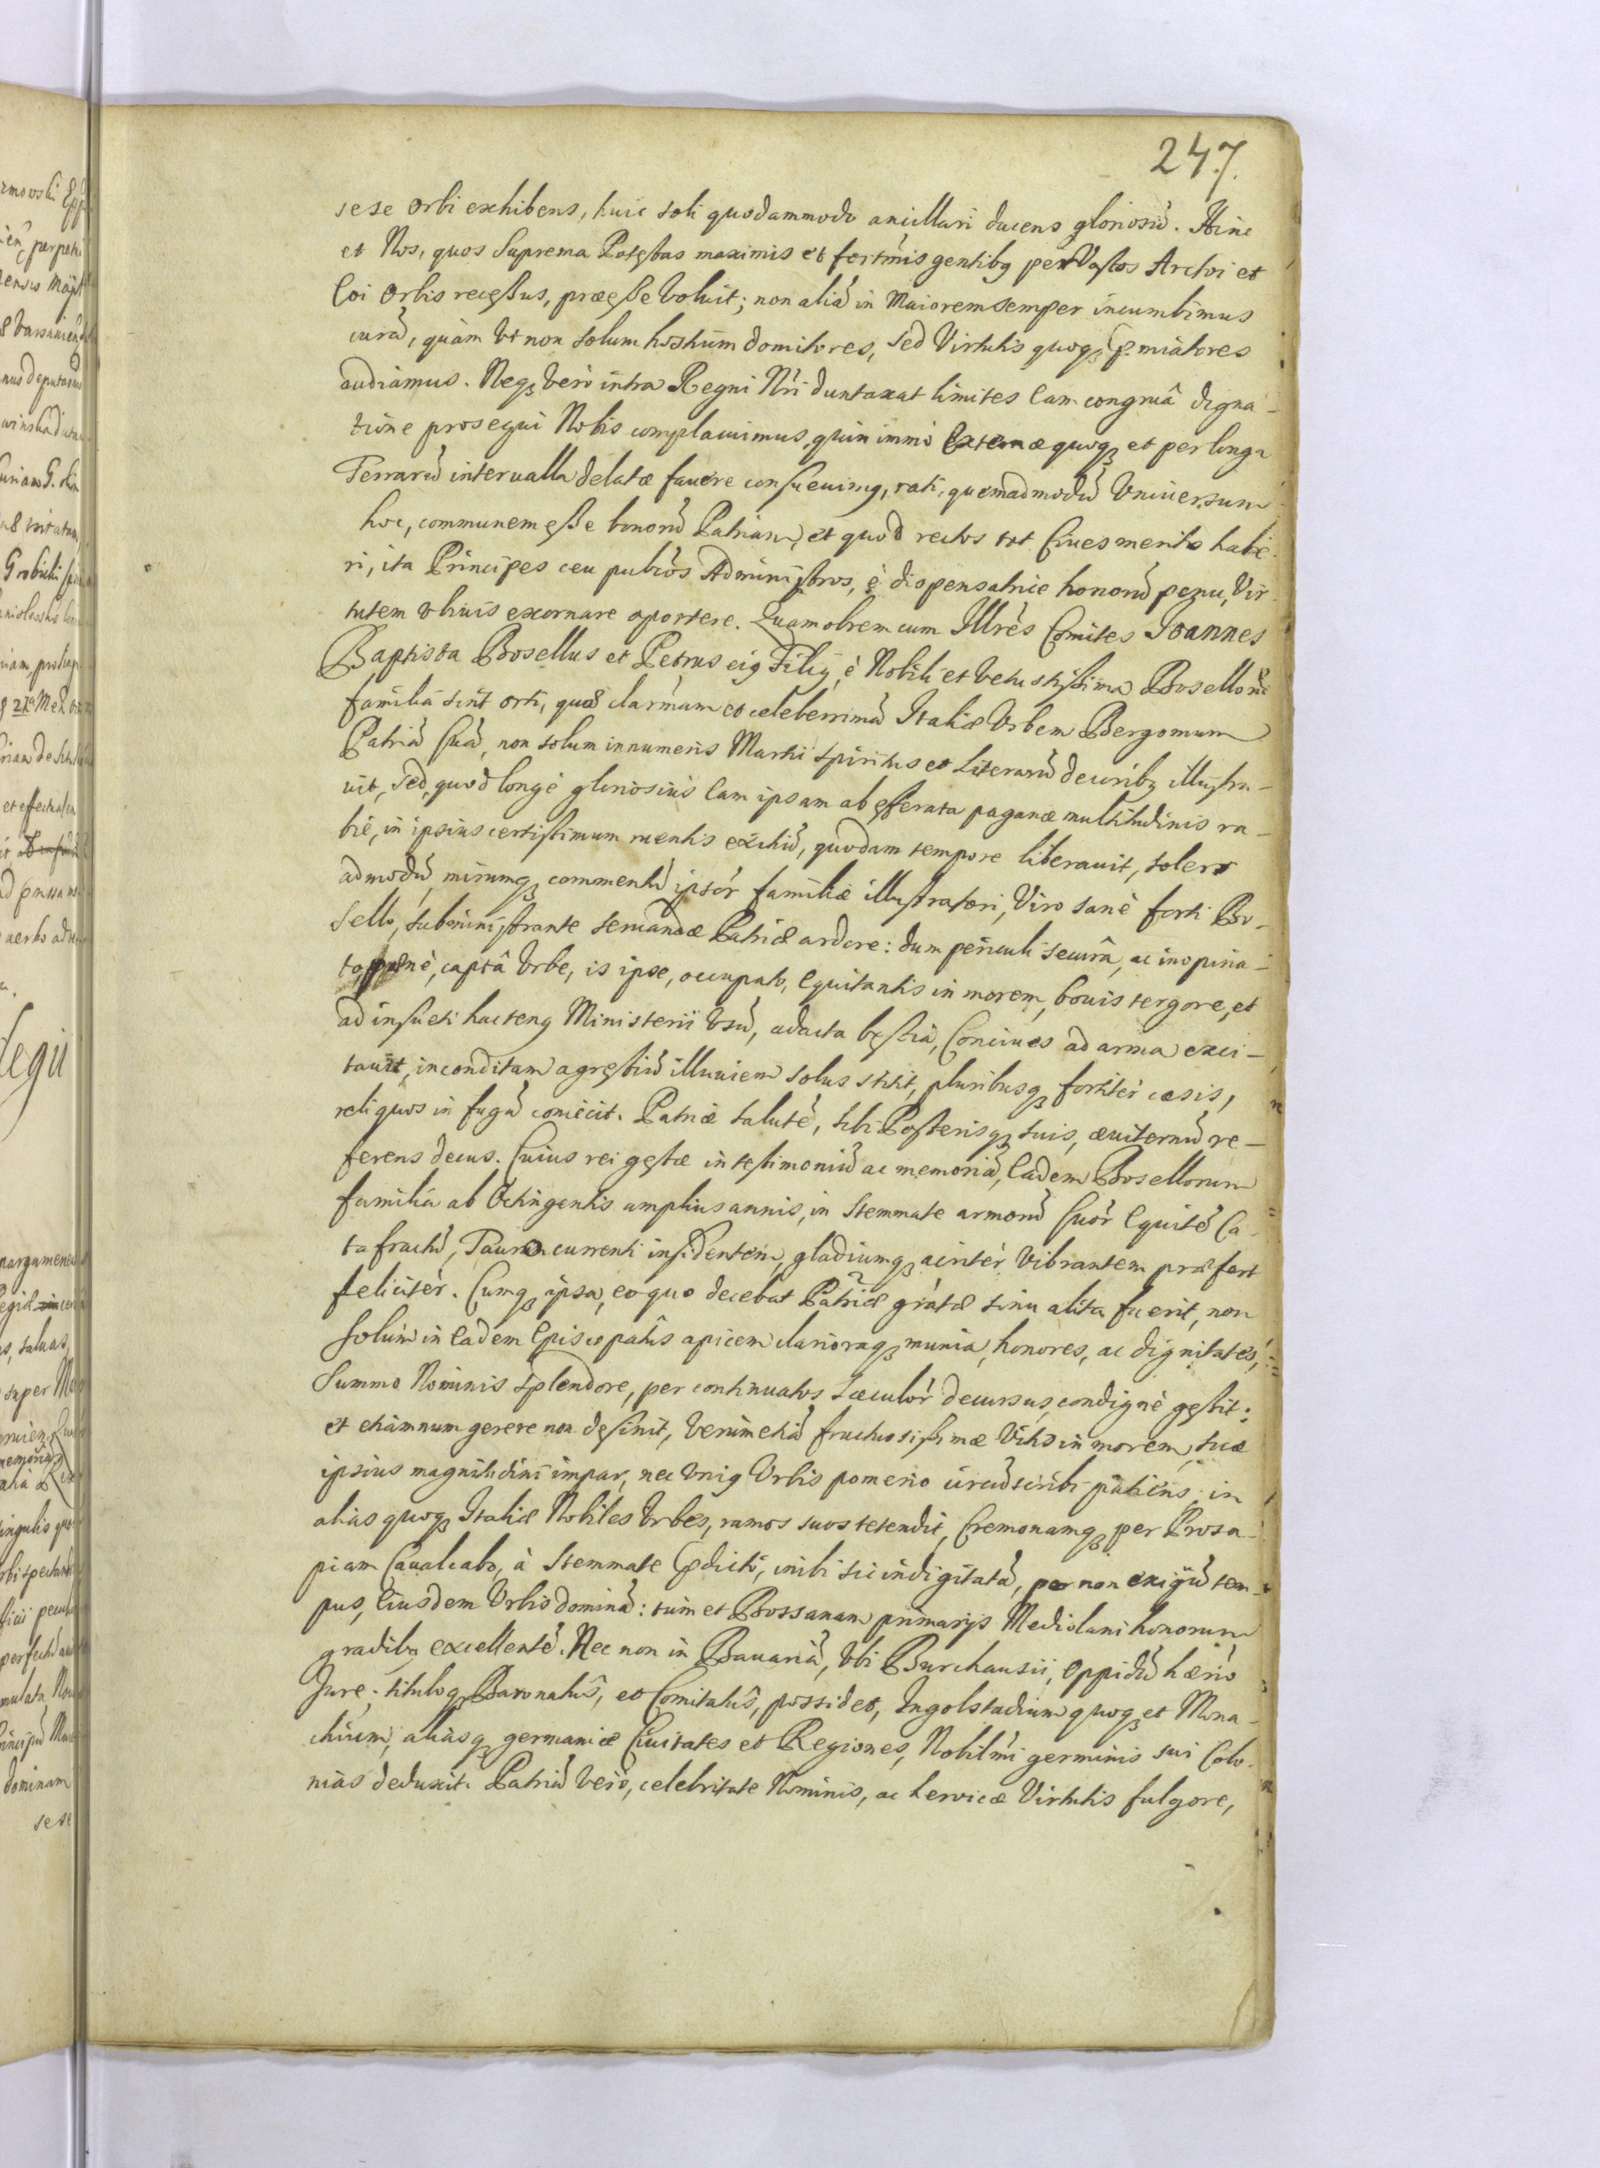 247.
sese Orbi exhibens, huic soli quodammodo ancillari ducens gloriosũ. Hinc
et Nos, quos Suprema Potestas maximis et fortmis gentibq per Vastos Arctoi et
Eoi Orbis recessus, præesse Voluit; non aliã in Maiorem semper incumbimus
curã, quàm Vt non solum hostium domitores, sed Virtutis quoqȝ Pmiatores
audiamus. Neqȝ Verò intra Regni Nri duntaxat limites Eam congruâ digna-
tione prosequi Nobis complacuimus, quin immò Externæ quoqȝ et per longa
Terrarũ interualla delatæ fauere consueuimq, rati, quemadmodũ Vniuersum
hoc, communem esse bonorũ Patriam, et quod rectos tot Ciues merito habe-
ri, ita Principes ceu publicos Administros, è dispensatrice honorũ penu, Vir-
tutem Vbiuis exornare oportere. Quamobrem cum Illres Comites Joannes
Baptista Bosellus et Petrus eiq Filij, è Nobili et Vetustissima Bosellorũ
familia sint orti, quæ clarmam et celeberrimã Italiæ Vrbem Bergomum
Patriã suã, non solum innumeris Martii spiritus et Literarũ decoribq illustra-
uit, sed, quod longè gloriosius Eam ipsam ab efferata paganæ multitudinis ra-
bie, in ipsius certissimum ruentis exitiũ, quodam tempore liberauit, solers
admodũ, mirumqȝ commentũ ipsor familiæ illustratori, Viro sanè forti Bo-
sello, subministrante seruandæ Patriæ ardore: dum periculi securâ, ac inopina-
to, penè, captâ Vrbe, is ipse, occupato, Equitantis in morem, bouis tergore, et
ad insueti hactenq Ministerii Vsũ, adacta bestia, Conciues ad arma exci-
tauit, inconditam agrestiũ illuuiem solus stitit, pluribusqȝ fortiter cæsis,
reliquos in fugã coniecit. Patriæ salutẽ, sibi Posterisqȝ suis, æuiternũ re-
ferens decus. Cuius rei gestæ in testimoniũ ac memoriã, Eadem Bosellorum
familia ab Octingentis amplius annis, in Stemmate armorũ suor Equitẽ Ca-
tafractũ, Tauro currenti insidentem, gladiumqȝ acriter Vibrantem præfert
feliciter. Cumqȝ ipsa, eo quo decebat Patriæ gratæ sinu alita fuerit, non
solùm in Eadem Episcopatûs apicem clarioraqȝ munia, honores, ac dignitates,
Summo Nominis splendore, per continuatos sæculor decursus, condignè gessit;
et etiamnum gerere non desinit, Verùm etiã fructuosissimæ Vitis in morem, suæ
ipsius magnitudini impar, nec Vniq Vrbis pomerio circũscribi patiens, in
alias quoqȝ Italiæ Nobiles Vrbes, ramos suos tetendit, Cremonamqȝ per Prosa-
piam Caualcabo, à Stemmate Pdicto, inibi sic indigitatã, per non exiguũ tem-
pus, Eiusdem Vrbis dominã: tum et Bossanam primarijs Mediolani honorum
gradibq excellentẽ. Nec non in Bauariã, Vbi Burchausii, Oppidũ hærio
Jure, tituloqȝ Baronatûs, et Comitatûs, possidet, Ingolstadium quoqȝ et Mona-
chium, aliasqȝ germaniæ Ciuitates et Regiones, Nobilmi germinis sui Colo-
nias deduxit. Patriã Verò, celebritate Nominis, ac heroicæ Virtutis fulgore,